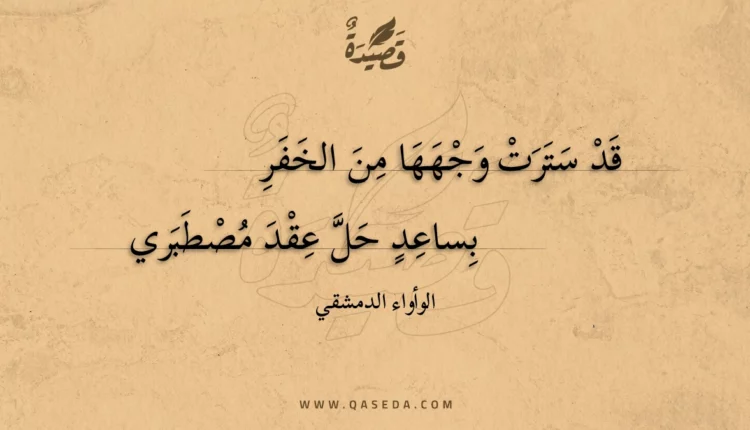 قَصِيدَةٌ
قَدْ سَتَرَتْ وَجْهَهَا مِنَ الخَفَرِ
بِساعِدٍ حَلَّ عِقْدَ مُصْطَبَري
الوأواء الدمشقي
WWW.QASEDA.COM